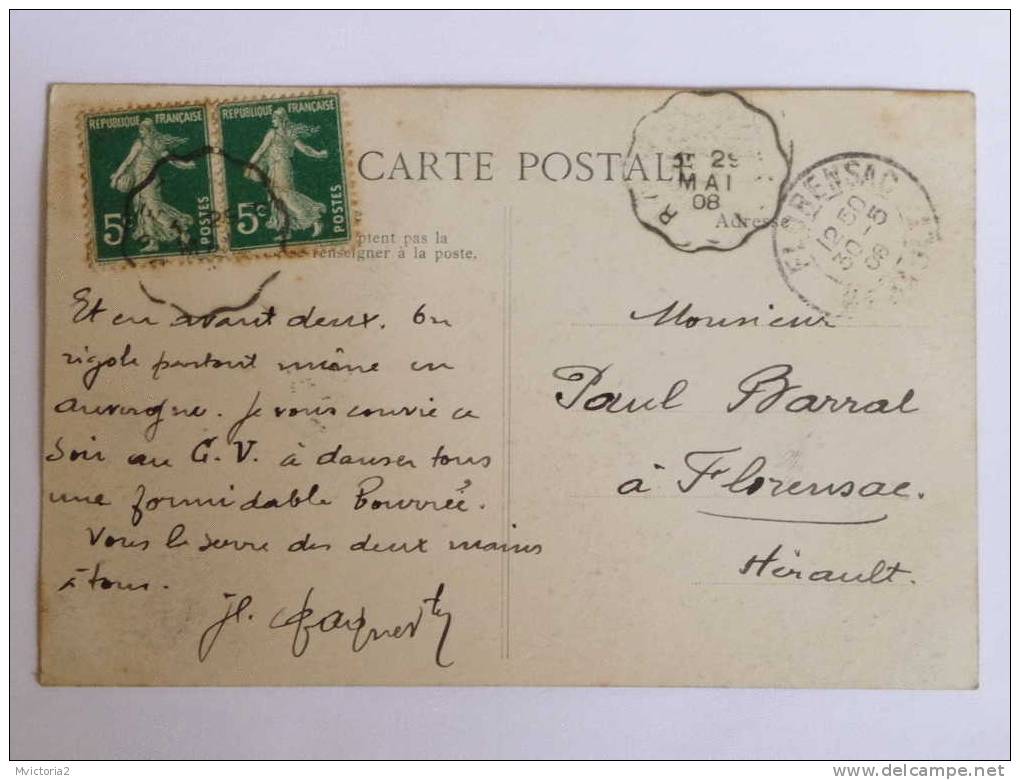 REPUBLIQUE FRANÇAISE
5c
POSTES
REPUBLIQUE FRANÇAISE
5c
POSTES
CARTE POSTALE
29
MAI
08
R
FLORENSAC
12 50
30 - 5
08
Adresse
ptent pas la
renseigner à la poste.
Et en avant deux. On
rigole partout même en
auvergne. Je vous convie ce
Soir au G.V. à danser tous
une formidable Bourrée.
Vous le serre des deux mains
à tous.
Monsieur
Paul Barral
à Florensac.
Hérault.
Mvictoria2
delcampe.net